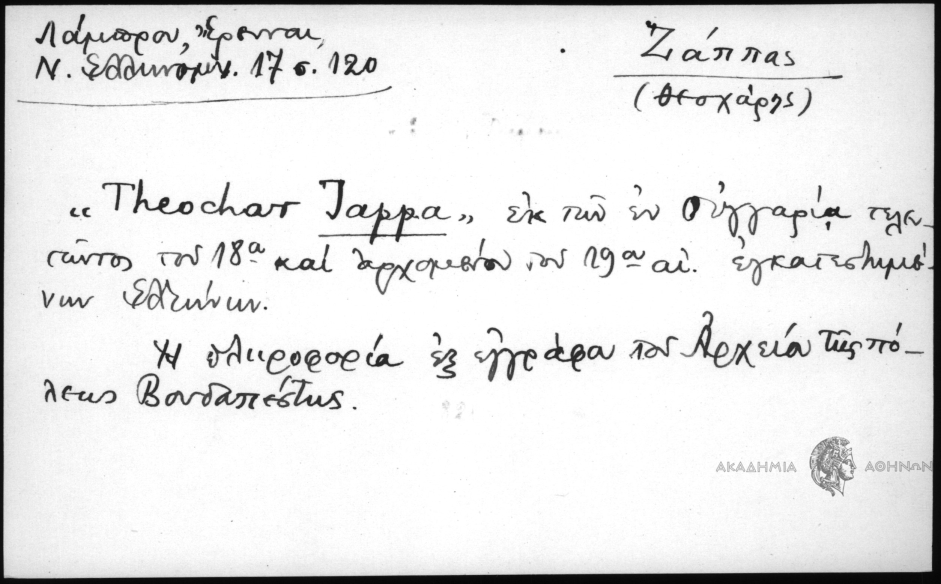 Λάμπρου, Ἔρευναι,
Ν. Ἑλληνομν. 17 σ. 120
Ζάππας
(Θεοχάρης)
“Theochar Jappa„ ἐκ τῶν ἐν Οὑγγαρίᾳ τελευ-
τῶντος τοῦ 18ου καὶ ἀρχομένου τοῦ 19ου αἰ. ἐγκατεστημέ-
νων Ἑλλήνων.
Ἡ πληροφορία ἐξ ἐγγράφου τοῦ Ἀρχείου τῆς πό-
λεως Βουδαπέστης.
ΑΚΑΔΗΜΙΑ ΑΘΗΝΩΝ